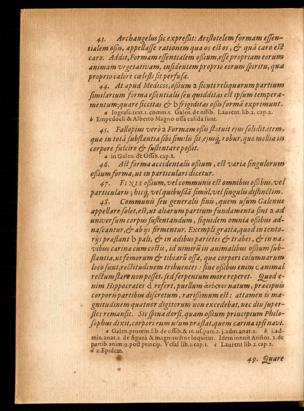 43. Archangelus sic expressit: Aristotelem formam essen-
tialem ossiū, appellasse rationem qua os est os, & quà caro est
caro. Addit, Formam essentialem ossium, esse propriam eorum
animam vegetativam, insidentem proprio eorum spiritu, qua
proprio calore cælesti sit perfusa.
44. At apud Medicos, ossium & sunt reliquarum partium
similarium forma essentialis seu quidditas est ipsum tempera-
mentum; quare siccitas & b frigiditas ossis formā exprimunt.
a
b Empedocli & Alberto Magno ossa calida sunt.
45. Fallopius verò a Formam ossis statuit ejus soliditatem,
quæ in totâ substantiâ sibi similis sit, ejusq́; robur, quo mollia in
corpore fulcire & sustentare possit.
a in Galen. de Ossib. cap. 2.
46. Ast forma accidentalis ossium, est varia singulorum
ossium forma, ut in particulari dicetur.
47. FINIS ossium, vel communis est omnibus ossibus: vel
particularis; hicq́; vel quibusdā simul, vel singulis distinctim.
48. Communis seu generalis finis, quem usum Galenus
appellare solet, est, ut aliarum partium fundamenta sint a ad
universum corpus sustentandum, siquidem omnia ossibus ad-
nascantur, & abijs firmentur. Exempli gratia, quod in tento-
rijs præstant b pali, & in ædibus parietes & trabes, & in na-
vibus carina cum costis, id numeri in animalibus ossium sub-
stantia, ut femorum & tibiarū ossa, quæ corpori columnarum
loco sunt, rectitudinem tribuentes: sine ossibus enim c animal
rectum stare non posset, sed serpentum more reperet. Quod e-
nim Hippocrates d refert, puellum natum, præcipuis
corporū partibus discretum, rarissimum est: attamen is ma-
gnitudinem quatuor digitorum non excedebat, nec diu super-
stes remansit. Sic spina dorsi, quam ossium principium Philo-
sophus dixit, corpori rerum usum præstat, quem carina ipsi navi.
49. Quare